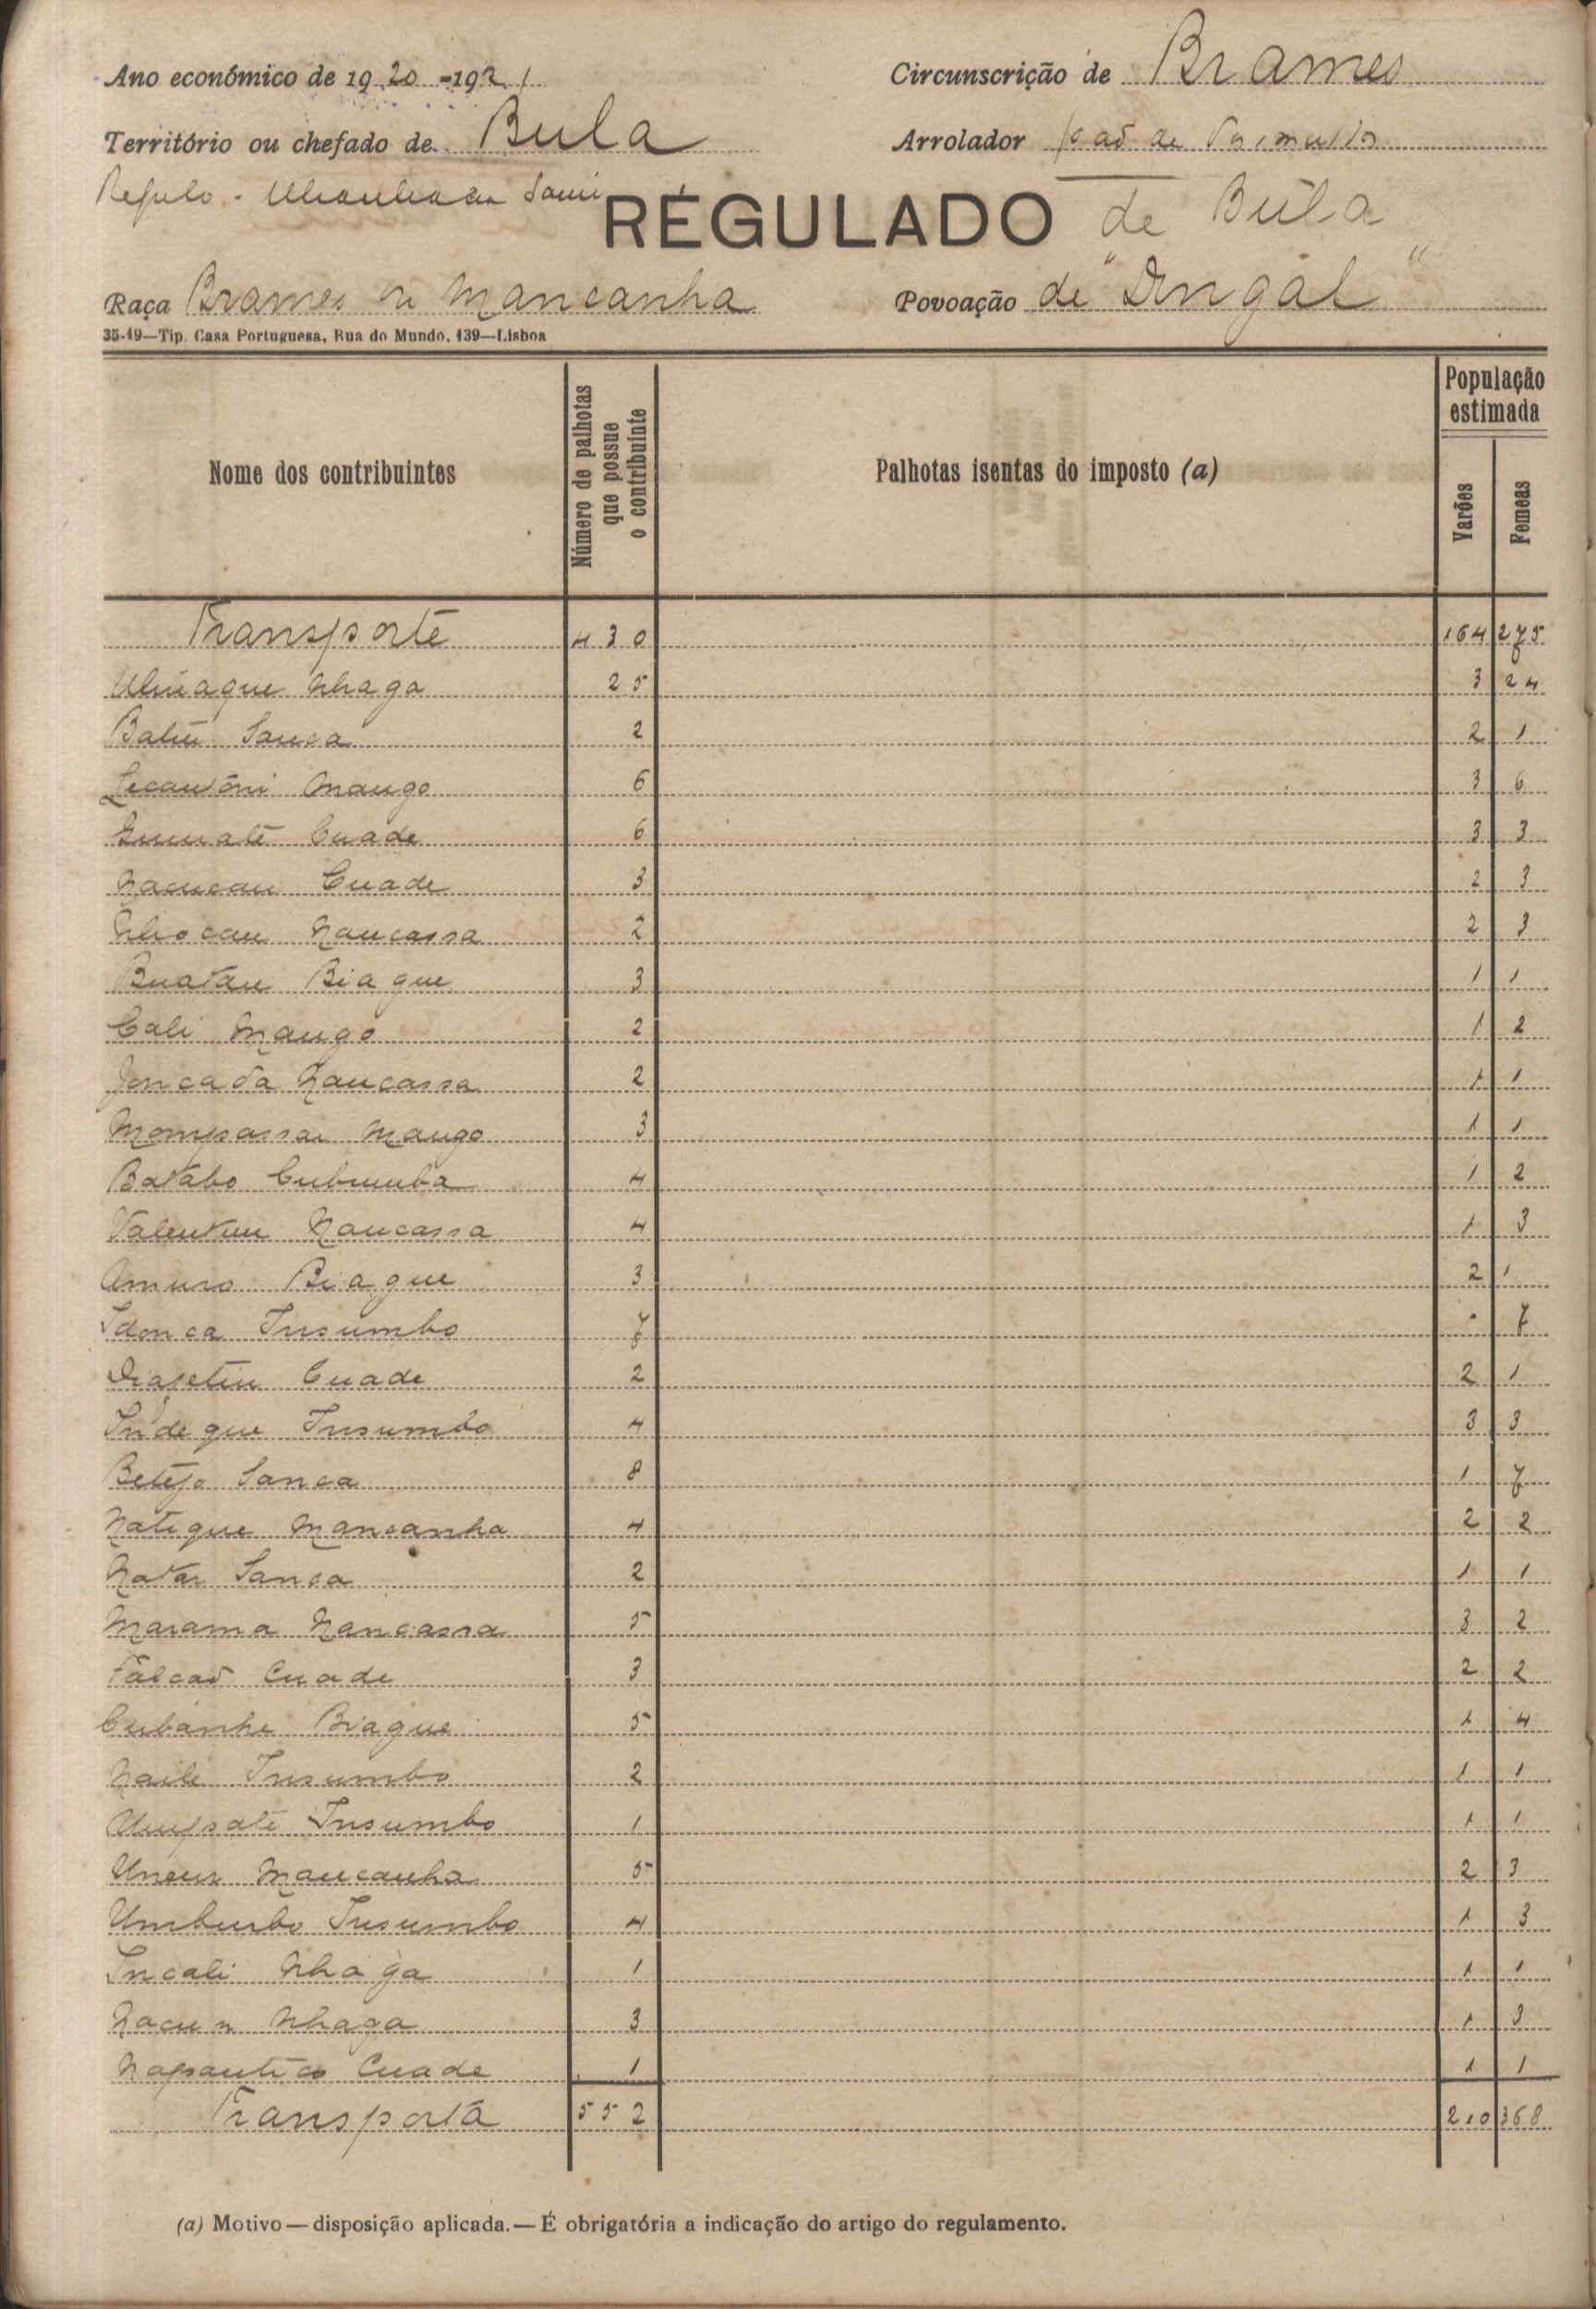 Ano económico de 1920-1921
Circunscrição de Brames
Território ou chefado de Bula
Arrolador João de
Regulo -
RÉGULADO de Bula
Raça Brames ou Mancanha
Povoação de "Dingal"
35-19—Tip. Casa Portuguesa, Rua do Mundo, 139—Lisboa
Nome dos contribuintes
Número de palhotas que possue o contribuinte
Palhotas isentas do imposto (a)
População estimada
Varões
Femeas
Transporte 430 164 275
Nhaga 25 3 24
Batiu Sanca 2 2 1
Mango 6 3 6
Cuade 6 3 3
Nacucau Cuade 3 2 3
Nhocau Naucassa 2 2 3
Buatau Biague 3 1 1
Cali Mango 2 1 2
Joncada Naucassa 2 1 1
Mompassar Mango 3 1 1
Batabo Cubumba 4 1 2
Valentim Naucassa 4 1 3
Amuro Biague 3 2 1
Idonca Insumbo 7 - 7
Cuade 2 2 1
Indeque Insumbo 4 3 3
Betejo Sanca 8 1 7
Natique Mancanha 4 2 2
Natar Sanca 2 1 1
Marama Nancassa 5 3 2
Falcaõ Cuade 3 2 2
Cubanhe Biague 5 1 4
Naile Insumbo 2 1 1
Insumbo 1 1 1
Mancanha 5 2 3
Umburbo Insumbo 4 1 3
Incali Nhaga 1 1 1
Nacun Nhaga 3 1 3
Cuade 1 1 1
Transporta 552 210 368
(a) Motivo—disposição aplicada.—É obrigatória a indicação do artigo do regulamento.